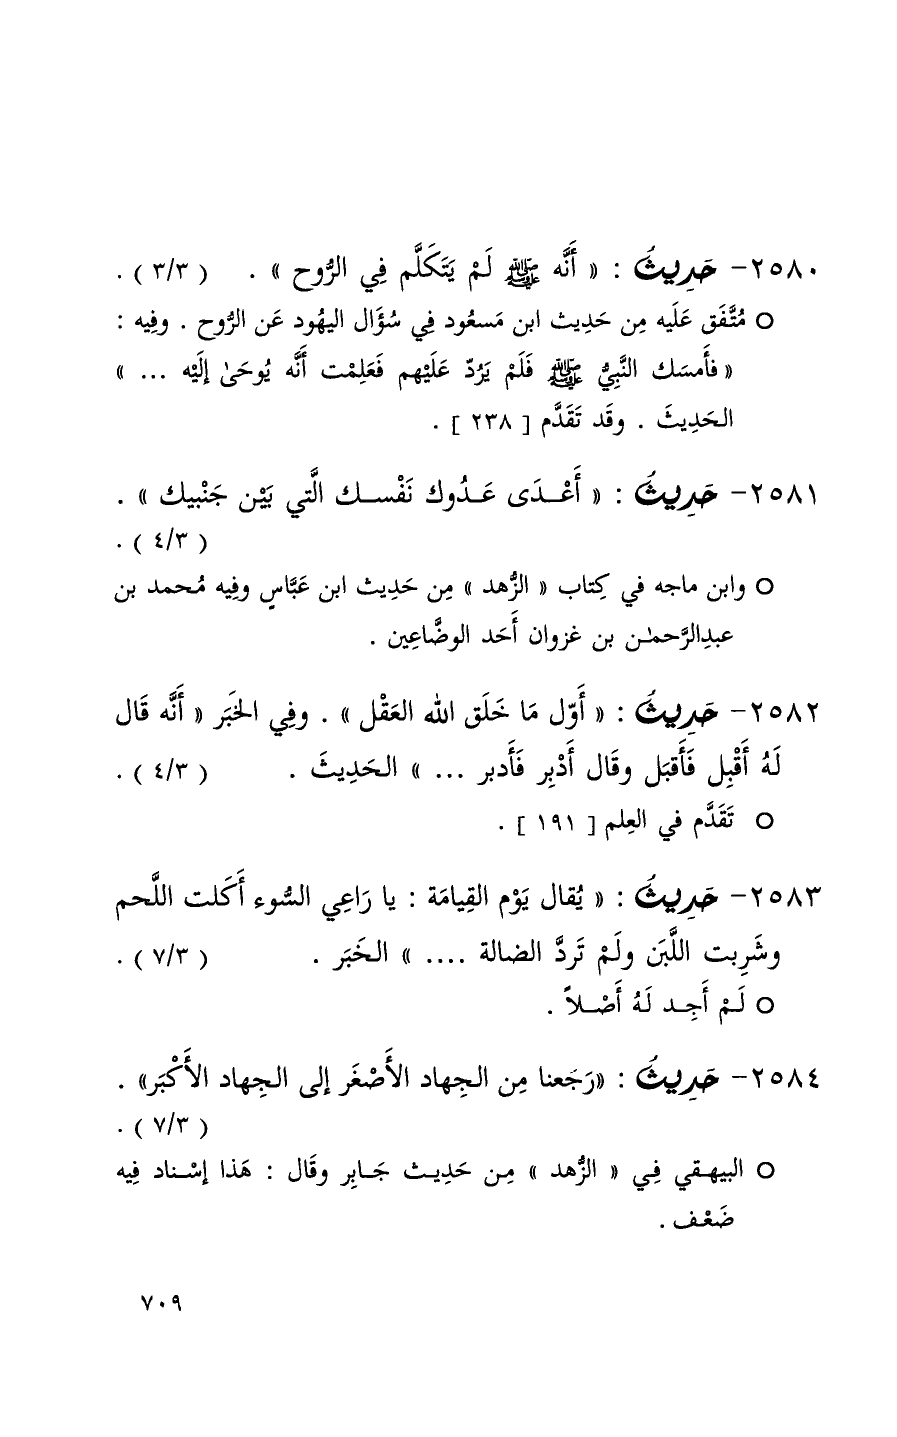 ٢٥٨٠- حَدِيثُ : « أَنَّه ﷺ لَمْ يَتَكَلَّم فِي الرُّوح » . ( ٣/٣ ) .
○ مُتَّفَق عَلَيه مِن حَدِيث ابن مَسعُود فِي سُؤَال اليهُود عَن الرُّوح . وفِيه :
« فأَمسَك النَّبِيُّ ﷺ فَلَمْ يَرُدّ عَلَيْهم فَعَلِمْت أَنَّه يُوحَىٰ إلَيْه ... »
الحَدِيثَ . وقَد تَقَدَّم [ ٢٣٨ ] .
٢٥٨١- حَدِيثُ : « أَعْـدَى عَـدُوك نَفْسـك الَّتي بَيْن جَنْبيك » .
( ٤/٣ ) .
○ وابن ماجه في كِتاب « الزُّهد » مِن حَدِيث ابن عَبَّاسٍ وفِيه مُحمد بن
عبدِالرَّحمـٰن بن غزوان أَحَد الوضَّاعِين .
٢٥٨٢- حَدِيثُ : « أَوّل مَا خَلَق الله العَقْل » . وفِي الخَبَر « أَنَّه قَال
لَهُ أَقْبِل فَأَقبَل وقَال أَدْبِر فَأَدبر ... » الحَدِيثَ . ( ٤/٣ ) .
○ تَقَدَّم في العِلم [ ١٩١ ] .
٢٥٨٣- حَدِيثُ : « يُقال يَوْم القِيامَة : يا رَاعِي السُّوء أَكَلت اللَّحم
وشَرِبت اللَّبَن ولَمْ تَردَّ الضالة .... » الخَبَر . ( ٧/٣ ) .
○ لَـمْ أَجِـد لَهُ أَصْـلاً .
٢٥٨٤- حَدِيثُ : «رَجَعنا مِن الجِهاد الأَصْغَر إلى الجِهاد الأَكْبَر» .
( ٧/٣ ) .
○ البيهـقي فِـي « الزُّهد » مِـن حَدِيـث جَـابِر وقَال : هَذا إسْـناد فِيه
ضَعْـف .
٧٠٩